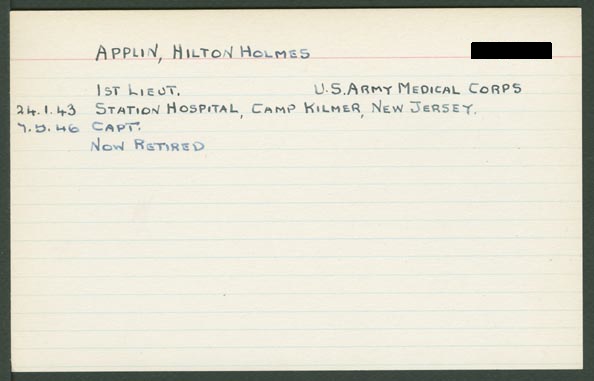 APPLIN, HILTON HOLMES
1ST LIEUT. U.S. ARMY MEDICAL CORPS
24.1.43 STATION HOSPITAL, CAMP KILMER, NEW JERSEY.
7.5.46 CAPT.
NOW RETIRED